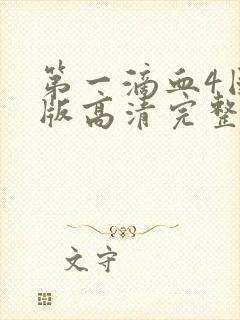 第一滴血4国
版高清完整
文守